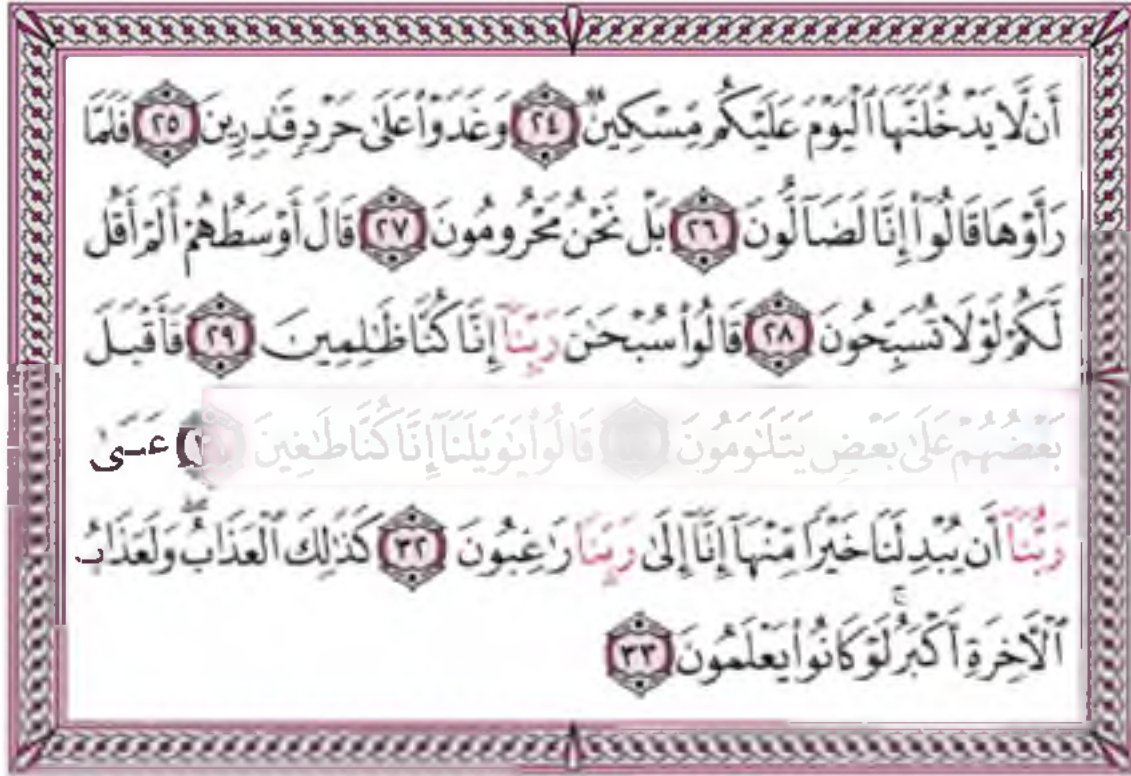 أَن لَّا يَدْخُلَنَّهَا ٱلْيَوْمَ عَلَيْكُم مِّسْكِينٌ ﴿٢٤﴾ وَغَدَوْا۟ عَلَىٰ حَرْدٍ قَٰدِرِينَ ﴿٢٥﴾ فَلَمَّا
رَأَوْهَا قَالُوٓا۟ إِنَّا لَضَآلُّونَ ﴿٢٦﴾ بَلْ نَحْنُ مَحْرُومُونَ ﴿٢٧﴾ قَالَ أَوْسَطُهُمْ أَلَمْ أَقُل
لَّكُمْ لَوْلَا تُسَبِّحُونَ ﴿٢٨﴾ قَالُوا۟ سُبْحَٰنَ رَبِّنَآ إِنَّا كُنَّا ظَٰلِمِينَ ﴿٢٩﴾ فَأَقْبَلَ
بَعْضُهُمْ عَلَىٰ بَعْضٍ يَتَلَٰوَمُونَ قَالُوا۟ يَٰوَيْلَنَآ إِنَّا كُنَّا طَٰغِينَ عَسَىٰ
رَبُّنَآ أَن يُبْدِلَنَا خَيْرًا مِّنْهَآ إِنَّآ إِلَىٰ رَبِّنَا رَٰغِبُونَ ﴿٣٢﴾ كَذَٰلِكَ ٱلْعَذَابُ ۖ وَلَعَذَابُ
ٱلْءَاخِرَةِ أَكْبَرُ ۚ لَوْ كَانُوا۟ يَعْلَمُونَ ﴿٣٣﴾